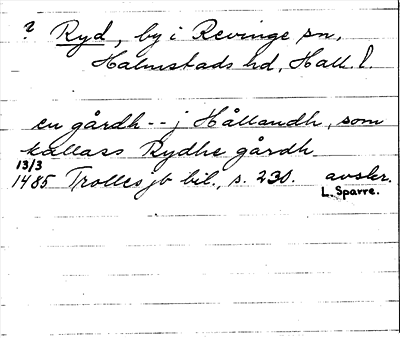 ? Ryd, by i Revinge sn,
Halmstads hd, Hall. l.
en gårdh -- j Hållandh, som
kallass Rydhe gårdh.
13/3
1485 Trolles jb bil., s. 230. avskr.
L. Sparre.